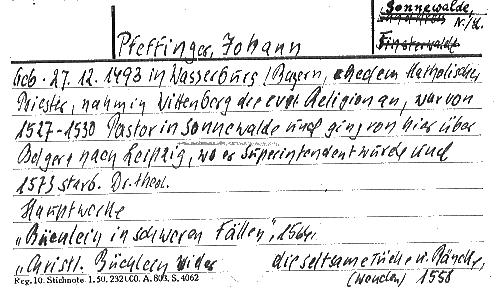 Sonnewalde,
N./L.
Finsterwalde
Pfeffinger, Johann
Geb. 27. 12. 1493 in Wasserburg / Bayern, ehedem Katholischer
Priester, nahm in Wittenberg die evgl. Religion an, war von
1527-1530 Pastor in Sonnewalde und ging von hier über
Belgern nach Leipzig, wo er Superintendent wurde und
1573 starb. Dr. theol.
Hauptwerke
„Büchlein in schweren Fällen", 1564.
„Christl. Büchlein wider die seltsame Tücke u. Räncke,
Reg. 10. Stichnote. 1. 50. 2321.00. A. 803. S. 4062
(wenden) 1558